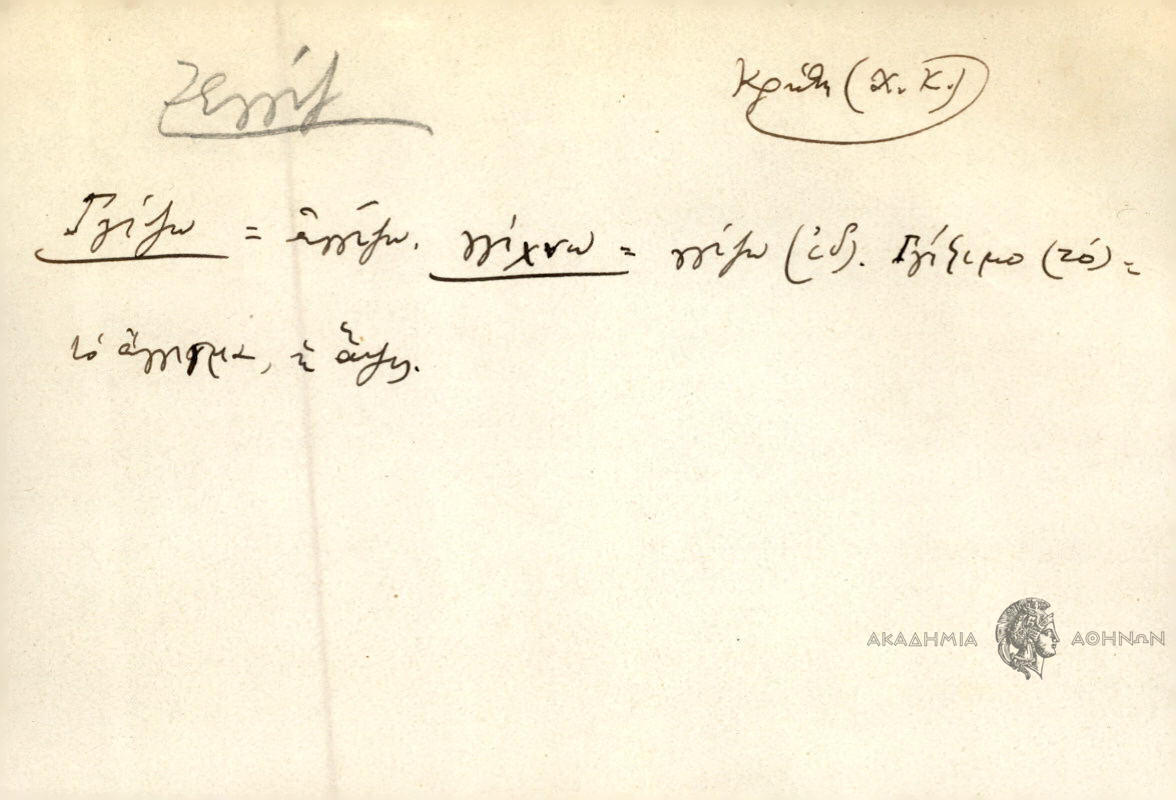 Κρήτη (Χ. Κ.)
Γγίζω = ἀγγίζω. γγίχνω = γγίζω (ἰδ). Γγίξιμο (τό) =
τό ἄγγιγμα, ἡ ἁφή.
ΑΚΑΔΗΜΙΑ ΑΘΗΝΩΝ